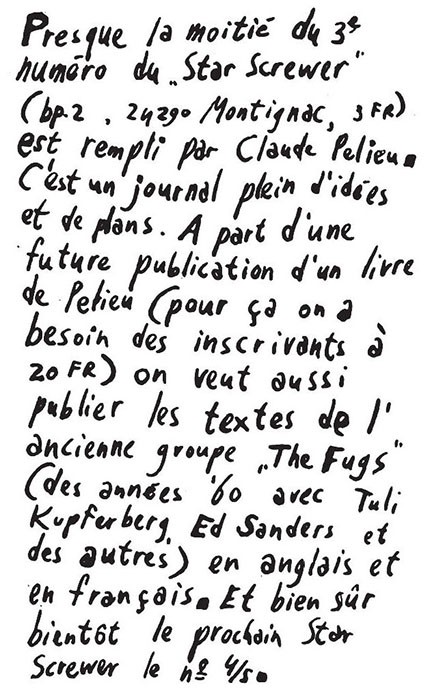 Presque la moitié du 3e
numéro du „Star Screwer"
(bp.2 , 24290 Montignac, 3 FR)
est rempli par Claude Pelieu.
C'est un journal plein d'idées
et de plans. A part d'une
future publication d'un livre
de Pelieu (pour ça on a
besoin des inscrivants à
20 FR) on veut aussi
publier les textes de l'
ancienne groupe „The Fugs"
(des années '60 avec Tuli
Kupferberg, Ed Sanders et
des autres) en anglais et
en français. Et bien sûr
bientôt le prochain Star
Screwer le nº 4/5.